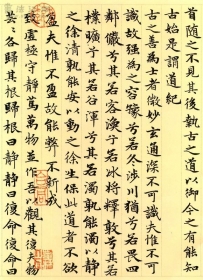 首隨之不見其後執古之道以御今之有能知
古始是謂道紀
古之善為士者微妙玄通深不可識夫惟不可
識故強為之容豫兮若冬涉川猶兮若畏四
鄰儼兮其若客渙兮若冰將釋敦兮其若
樸曠兮其若谷渾兮其若濁孰能濁以靜
之徐清孰能安以動之徐生保此道者不欲
盈夫惟不盈故能弊不新成
致虛極守靜篤萬物並作吾以觀其復夫物
芸々各歸其根歸根曰靜靜曰復命復命曰